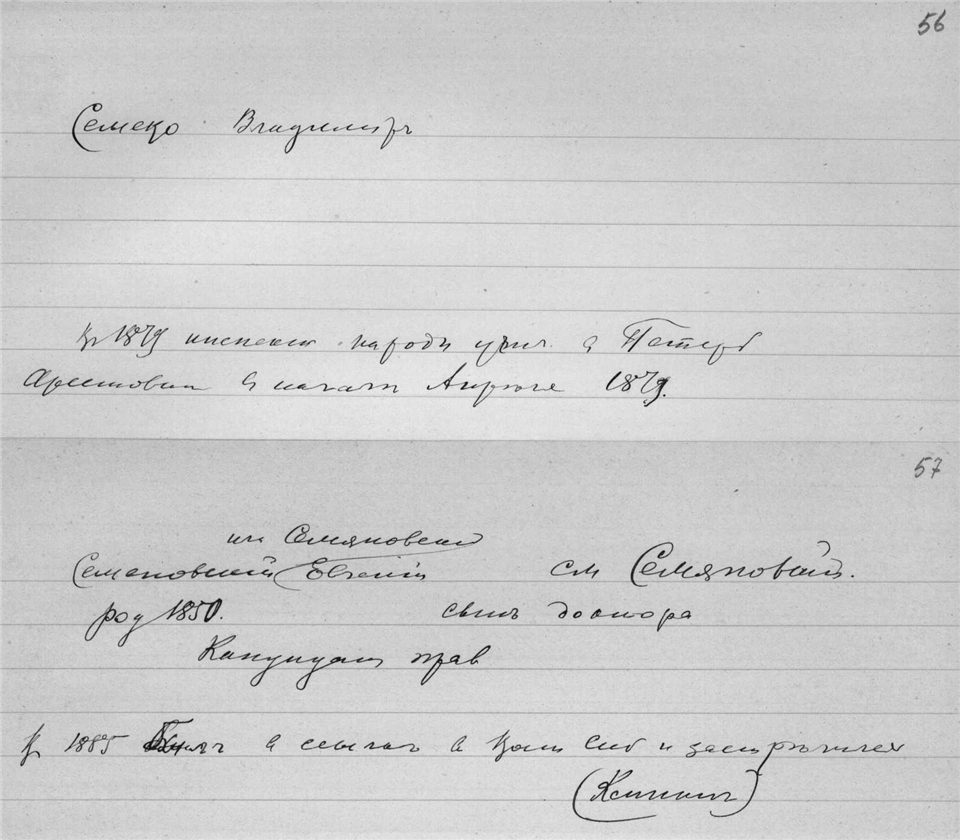 56
Семеко Владимиръ
Въ 1879 инспект народн учил в Петерб
Арестован в начале Апреле 1879.
57
или Семяновский
Семеновский Евгений см Семяновский.
род 1850. сынъ доктора
Кандидат прав
В 1885 Былъ в ссылке в Вост Сиб и застрелился
(Кеннан)